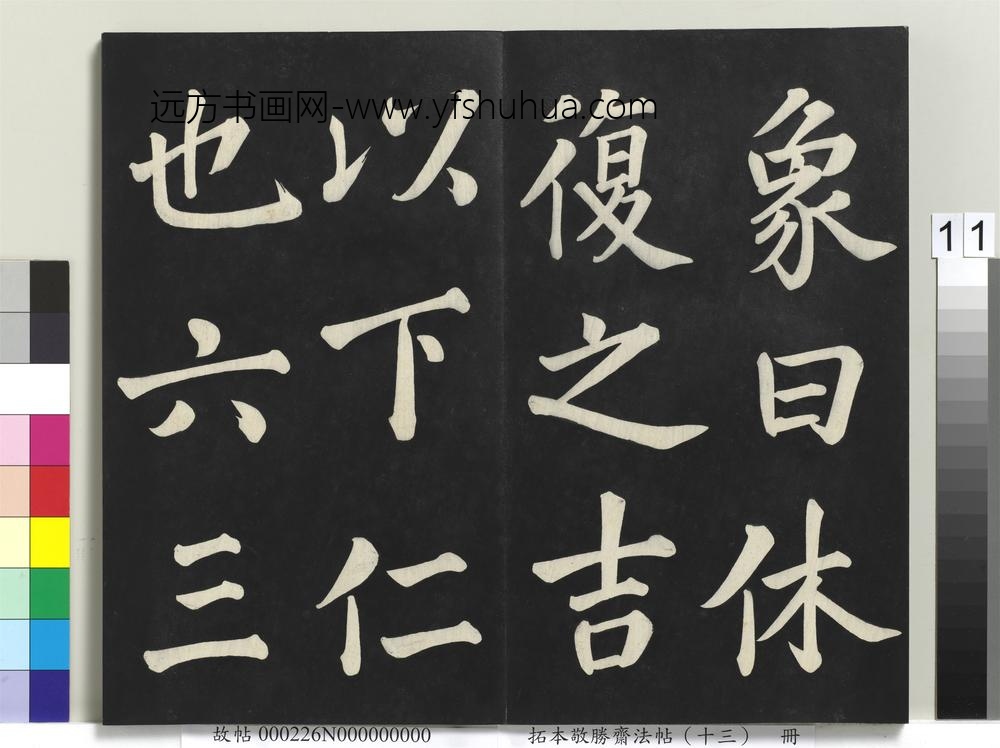 远方书画网-www.yfshuhua.com
象曰休
復之吉
以下仁
也六三
11
故帖 000226N000000000
拓本敬勝齋法帖（十三） 冊